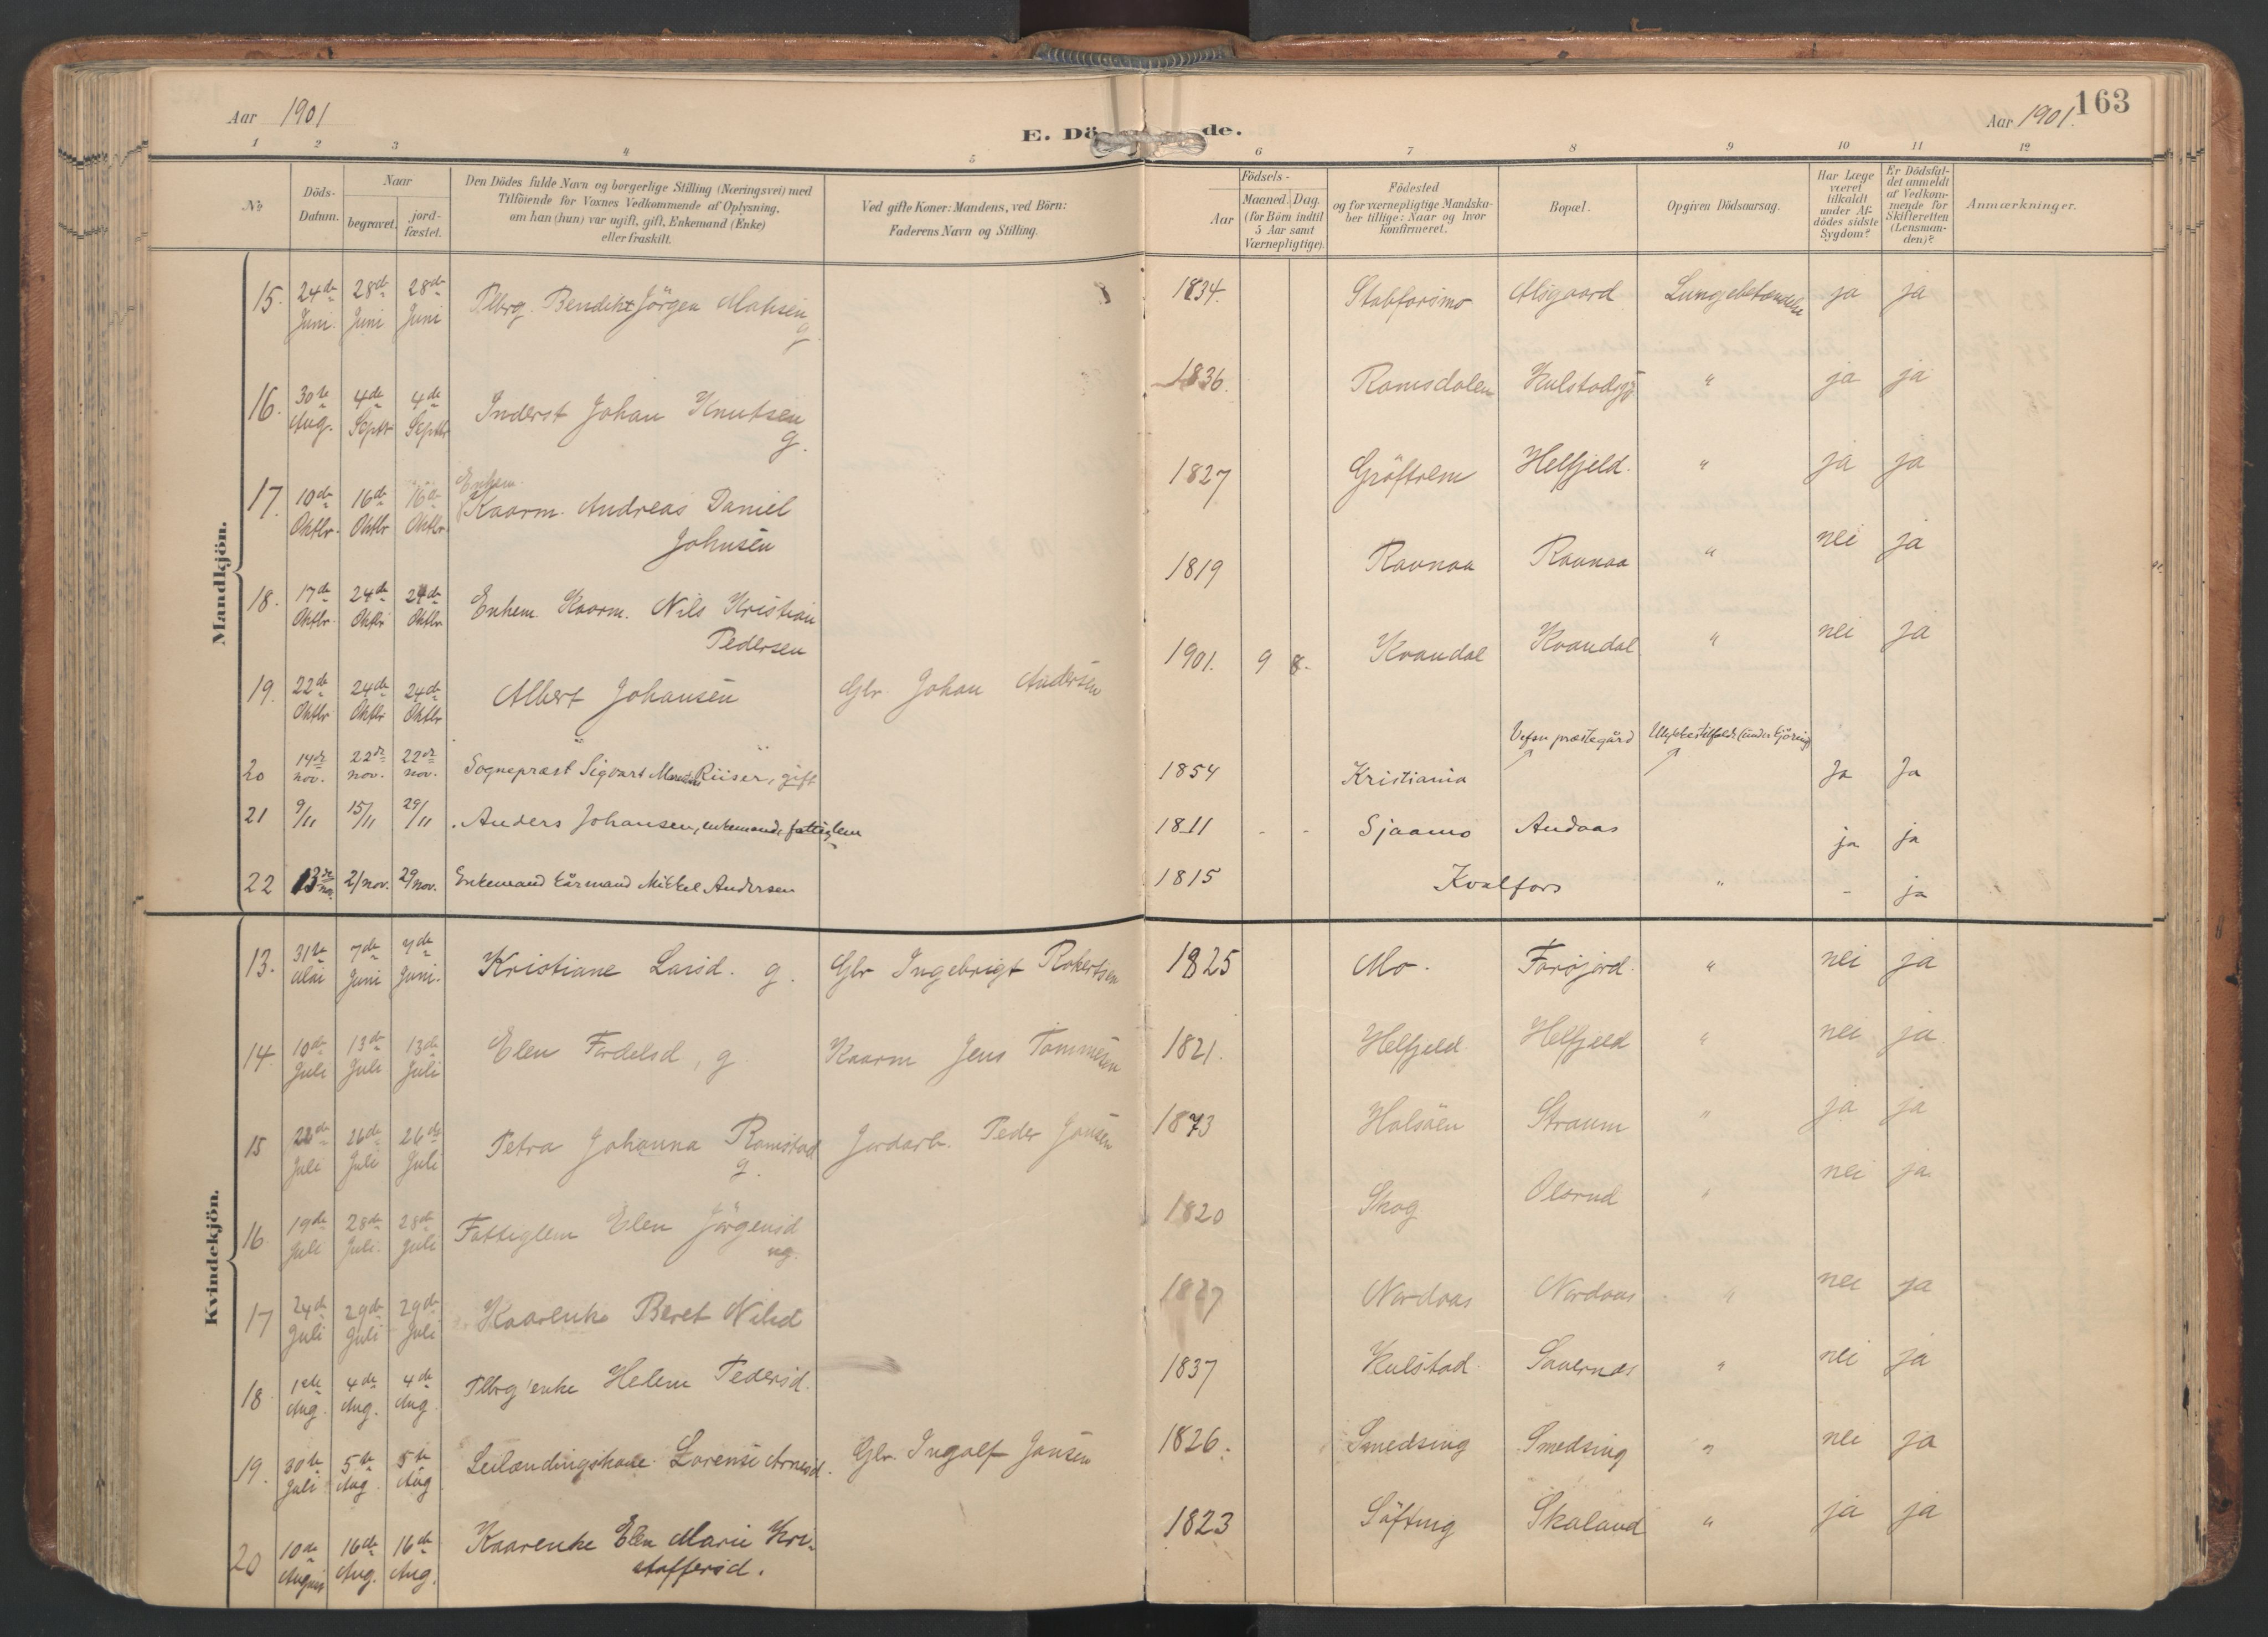 Aar 1901
E. Dö de.
Aar 1901. 163
1 2 3 4 5 6 7 8 9 10 11 12
No
Döds-Datum.
Naar
begravet.
jord-fæstet.
Den Dödes fulde Navn og borgerlige Stilling (Næringsvei) med
Tilföiende for Voxnes Vedkommende af Oplysning,
om han (hun) var ugift, gift, Enkemand (Enke)
eller fraskilt.
Ved gifte Koner: Mandens, ved Börn:
Faderens Navn og Stilling.
Födsels-
Aar
Maaned. Dag.
(for Börn indtil
5 Aar samt
Værnepligtige).
Födested
og for værnepligtige Mandska-
ber tillige: Naar og hvor
konfirmeret.
Bopæl.
Opgiven Dödsaarsag.
Har Læge
været
tilkaldt
under Af-
dödes sidste
Sygdom?
Er Dödsfal-
det anmeldt
af Vedkom-
mende for
Skifteretten
(Lensman-
den)?
Anmærkninger.
Mandkjön.
15. 24de Juni 28de Juni 28de Juni Plbrg. Bendikt Jörgen Matisen g. 1834. Stabforsmo Alsgaard Lungebetændelse ja ja
16. 30te Aug. 4de Septr 4de Septbr Inderst Johan Knutsen g. 1836. Romsdalen Kulstadsjö " ja ja
17. 10de Oktbr. 16de Oktbr 16de Oktbr Enkem. Kaarm. Andreas Daniel Johnsen 1827 Gröftrem Helfjeld. " ja ja
18. 17de Oktbr. 24de Oktbr 24de Oktbr Enkem. Kaarm. Nils Kristian Pedersen 1819 Ravnaa Ravnaa " nei ja
19. 22de Oktbr 24de Oktbr 24de Oktbr Albert Johansen Gbr. Johan Andersen 1901. 9 8. Kvandal Kvandal " nei ja
20 14de nov. 22de nov. 22de nov. Sognepræst Sigvart Riiser, gift 1854 Kristiania Vefsn præstegård Ulykkestilfælde (under kjöring) Ja Ja
21 9/11 15/11 29/11 Anders Johansen, enkemand, fattiglem 1811 - - Sjaamo Andaas ja ja
22 13de nov. 21 nov. 29 nov. Enkemand kårmand Mikkel Andersen 1815 Kvalfors " - ja
Kvindekjön.
13. 31te Mai 7de Juni 7de Juni. Kristiane Larsd. g. Gbr Ingebrigt Robertsen 1825 Mo. Forsjord. " nei ja
14. 10de Juli 13de Juli 13de Juli Elen Fordelsd, g Kaarm Jens Tommesen 1821. Helfjeld Helfjeld " nei ja
15 22de Juli 26de Juli 26de Juli Petra Johanna Ramstad g. Jordarb. Peder Jansen 1873 Halsöen Straum " ja ja
16. 19de Juli 28de Juli. 28de Juli Fattiglem Elen Jörgensd ug. 1820 Skog Olsrud " nei ja.
17 24de Juli 29de Juli 29de Juli Kaarenke Beret Nilsd 1827 Nordaas Nordaas " nei ja
18. 1ste Aug. 4de Aug. 4de Aug Plbrg'enke Helene Pedersd. 1837 Kulstad. " nei ja
19. 30te Juli 5te Aug 5te Aug Leilændingskone Lorense Arnesd. Gbr. Ingolf Jansen 1826. Smedsing Smedsing " nei ja
20 10de August 16de Aug. 16de Aug. Kaarenke Elen Marie Kri-
stoffersd. 1823 Söfting Skaland " ja ja